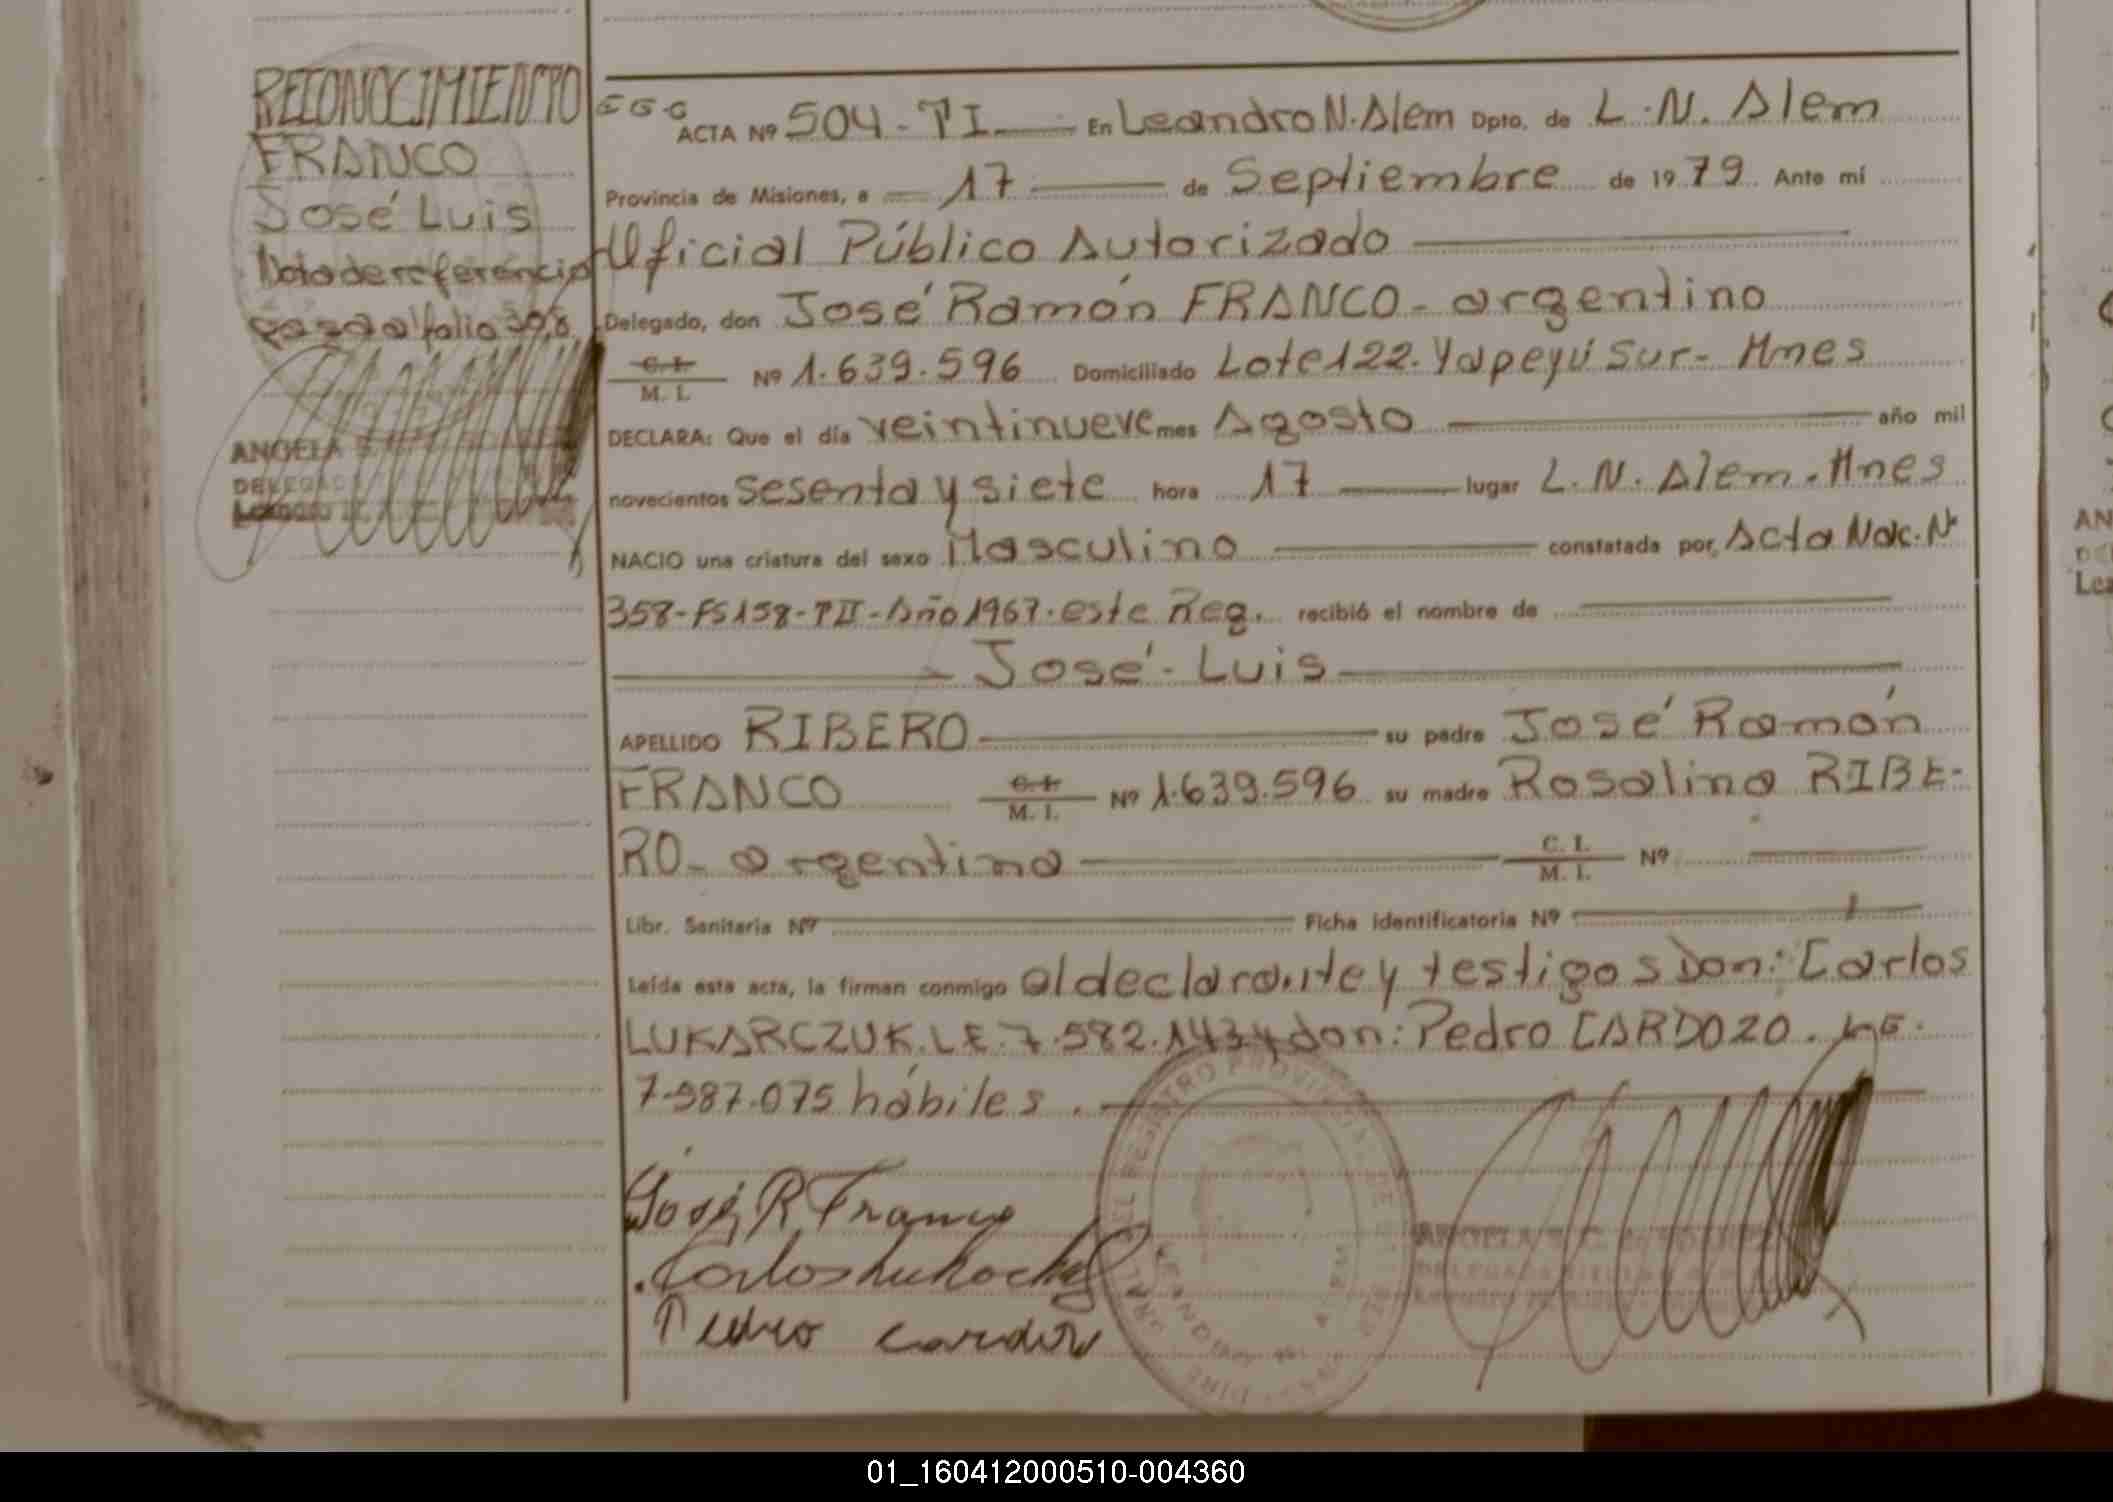 RECONOCIMIENTO
FRANCO
José Luis
Nota de referencia
pasa al folio 398
ANGELA
DELEGAD
Leandro
ACTA Nº 504 - TI En Leandro N. Alem Dpto. de L. N. Alem
Provincia de Misiones, a 17 de Septiembre de 1979 Ante mí
Oficial Público Autorizado
Delegado, don José Ramón FRANCO - argentino
C. I. / M. I. Nº 1.639.596 Domiciliado Lote 122. Yapeyú Sur - Mnes
DECLARA: Que el día veintinueve mes Agosto año mil
novecientos sesenta y siete hora 17 lugar L. N. Alem. Mnes
NACIO una criatura del sexo Masculino constatada por Acta Nac. Nº
358 - FS 158 - TII - Año 1967 . este Reg. recibió el nombre de
José - Luis
APELLIDO RIBERO su padre José Ramón
FRANCO C. I. / M. I. Nº 1.639.596 su madre Rosalina RIBE-
RO - argentina C. I. / M. I. Nº
Libr. Sanitaria Nº Ficha identificatoria Nº
Leída esta acta, la firman conmigo el declarante y testigos Don: Carlos
LUKARCZUK. LE. 7.582.143 y don: Pedro CARDOZO. LE.
7.587.075 hábiles.
José R Franco
Carlos
Pedro Cardozo
ANGELA
01_160412000510-004360